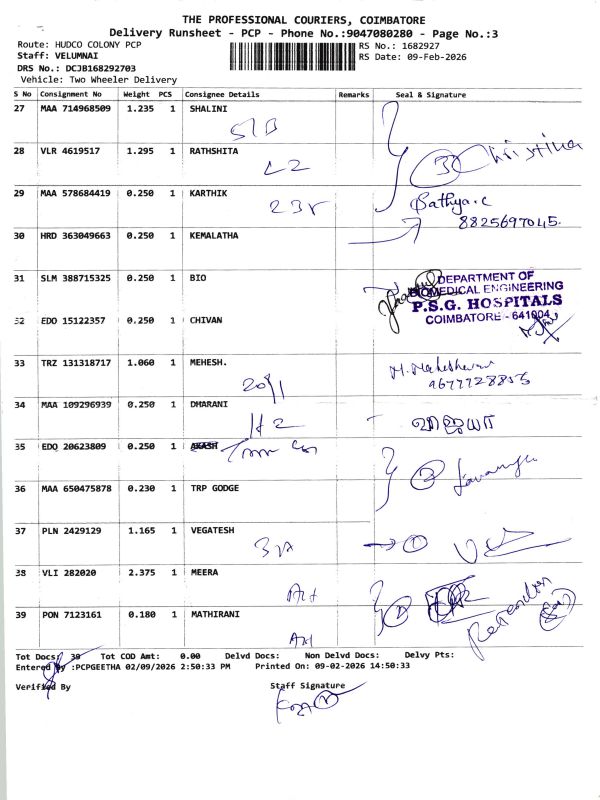 THE PROFESSIONAL COURIERS, COIMBATORE
Delivery Runsheet - PCP - Phone No.:9047080280 - Page No.:3
Route: HUDCO COLONY PCP
RS No.: 1682927
Staff: VELUMNAI
RS Date: 09-Feb-2026
DRS No.: DCJB168292703
Vehicle: Two Wheeler Delivery
S No Consignment No Weight PCS Consignee Details Remarks Seal & Signature
27 MAA 714968509 1.235 1 SHALINI
28 VLR 4619517 1.295 1 RATHSHITA
3 Christina
29 MAA 578684419 0.250 1 KARTHIK
Sathya.c
8825697045.
30 HRD 363049663 0.250 1 KEMALATHA
31 SLM 388715325 0.250 1 BIO
DEPARTMENT OF
BIOMEDICAL ENGINEERING
P.S.G. HOSPITALS
COIMBATORE - 641004
32 EDO 15122357 0.250 1 CHIVAN
33 TRZ 131318717 1.060 1 MEHESH.
34 MAA 109296939 0.250 1 DHARANI
35 EDO 20623809 0.250 1 AKASH
36 MAA 650475878 0.230 1 TRP GODGE
37 PLN 2429129 1.165 1 VEGATESH
38 VLI 282020 2.375 1 MEERA
39 PON 7123161 0.180 1 MATHIRANI
Tot Docs: 39 Tot COD Amt: 0.00 Delvd Docs: Non Delvd Docs: Delvy Pts:
Entered By :PCPGEETHA 02/09/2026 2:50:33 PM Printed On: 09-02-2026 14:50:33
Verified By Staff Signature